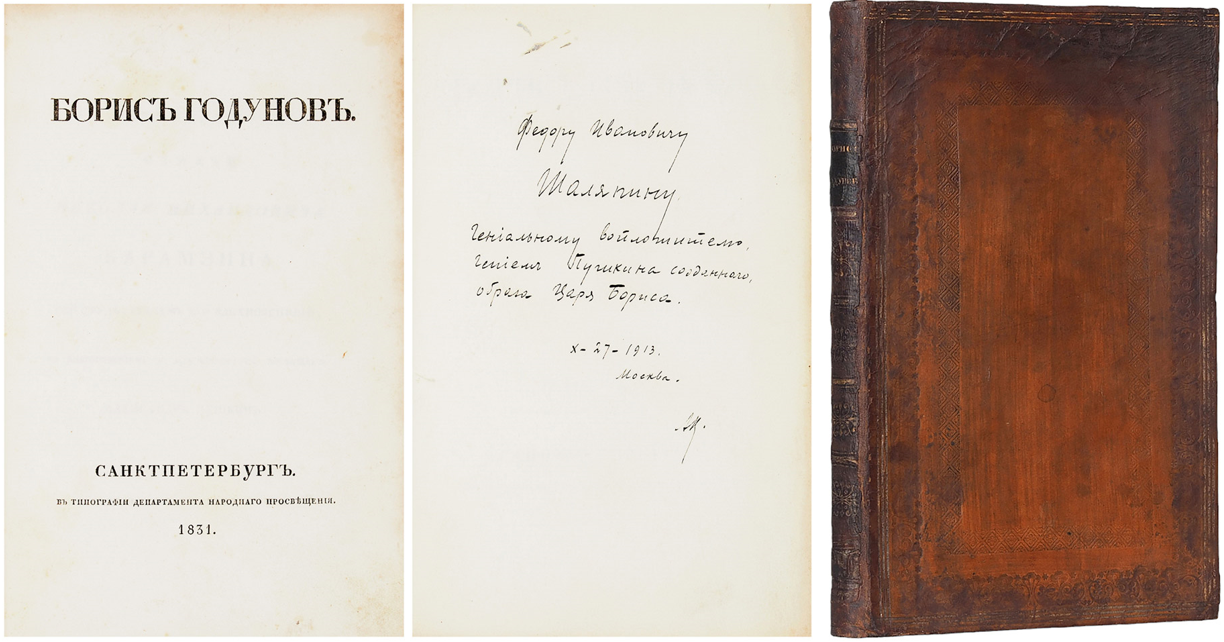 БОРИСЪ ГОДУНОВЪ.
САНКТПЕТЕРБУРГЪ.
ВЪ ТИПОГРАФІИ ДЕПАРТАМЕНТА НАРОДНАГО ПРОСВѢЩЕНІЯ.
1831.
Федору Ивановичу
Шаляпину
Геніальному воплотителю,
геніемъ Пушкина созданнаго,
образа Царя Бориса.
X-27-1913.
Москва.